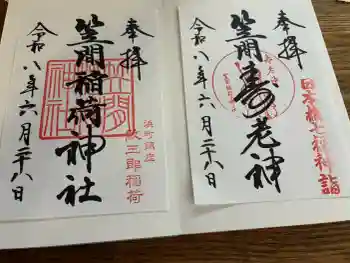 奉拝
日本橋七福神詣
笠間寿老神
令和八年六月二十八日
奉拝
浜町鎮座
笠間稲荷神社
令和八年六月二十八日